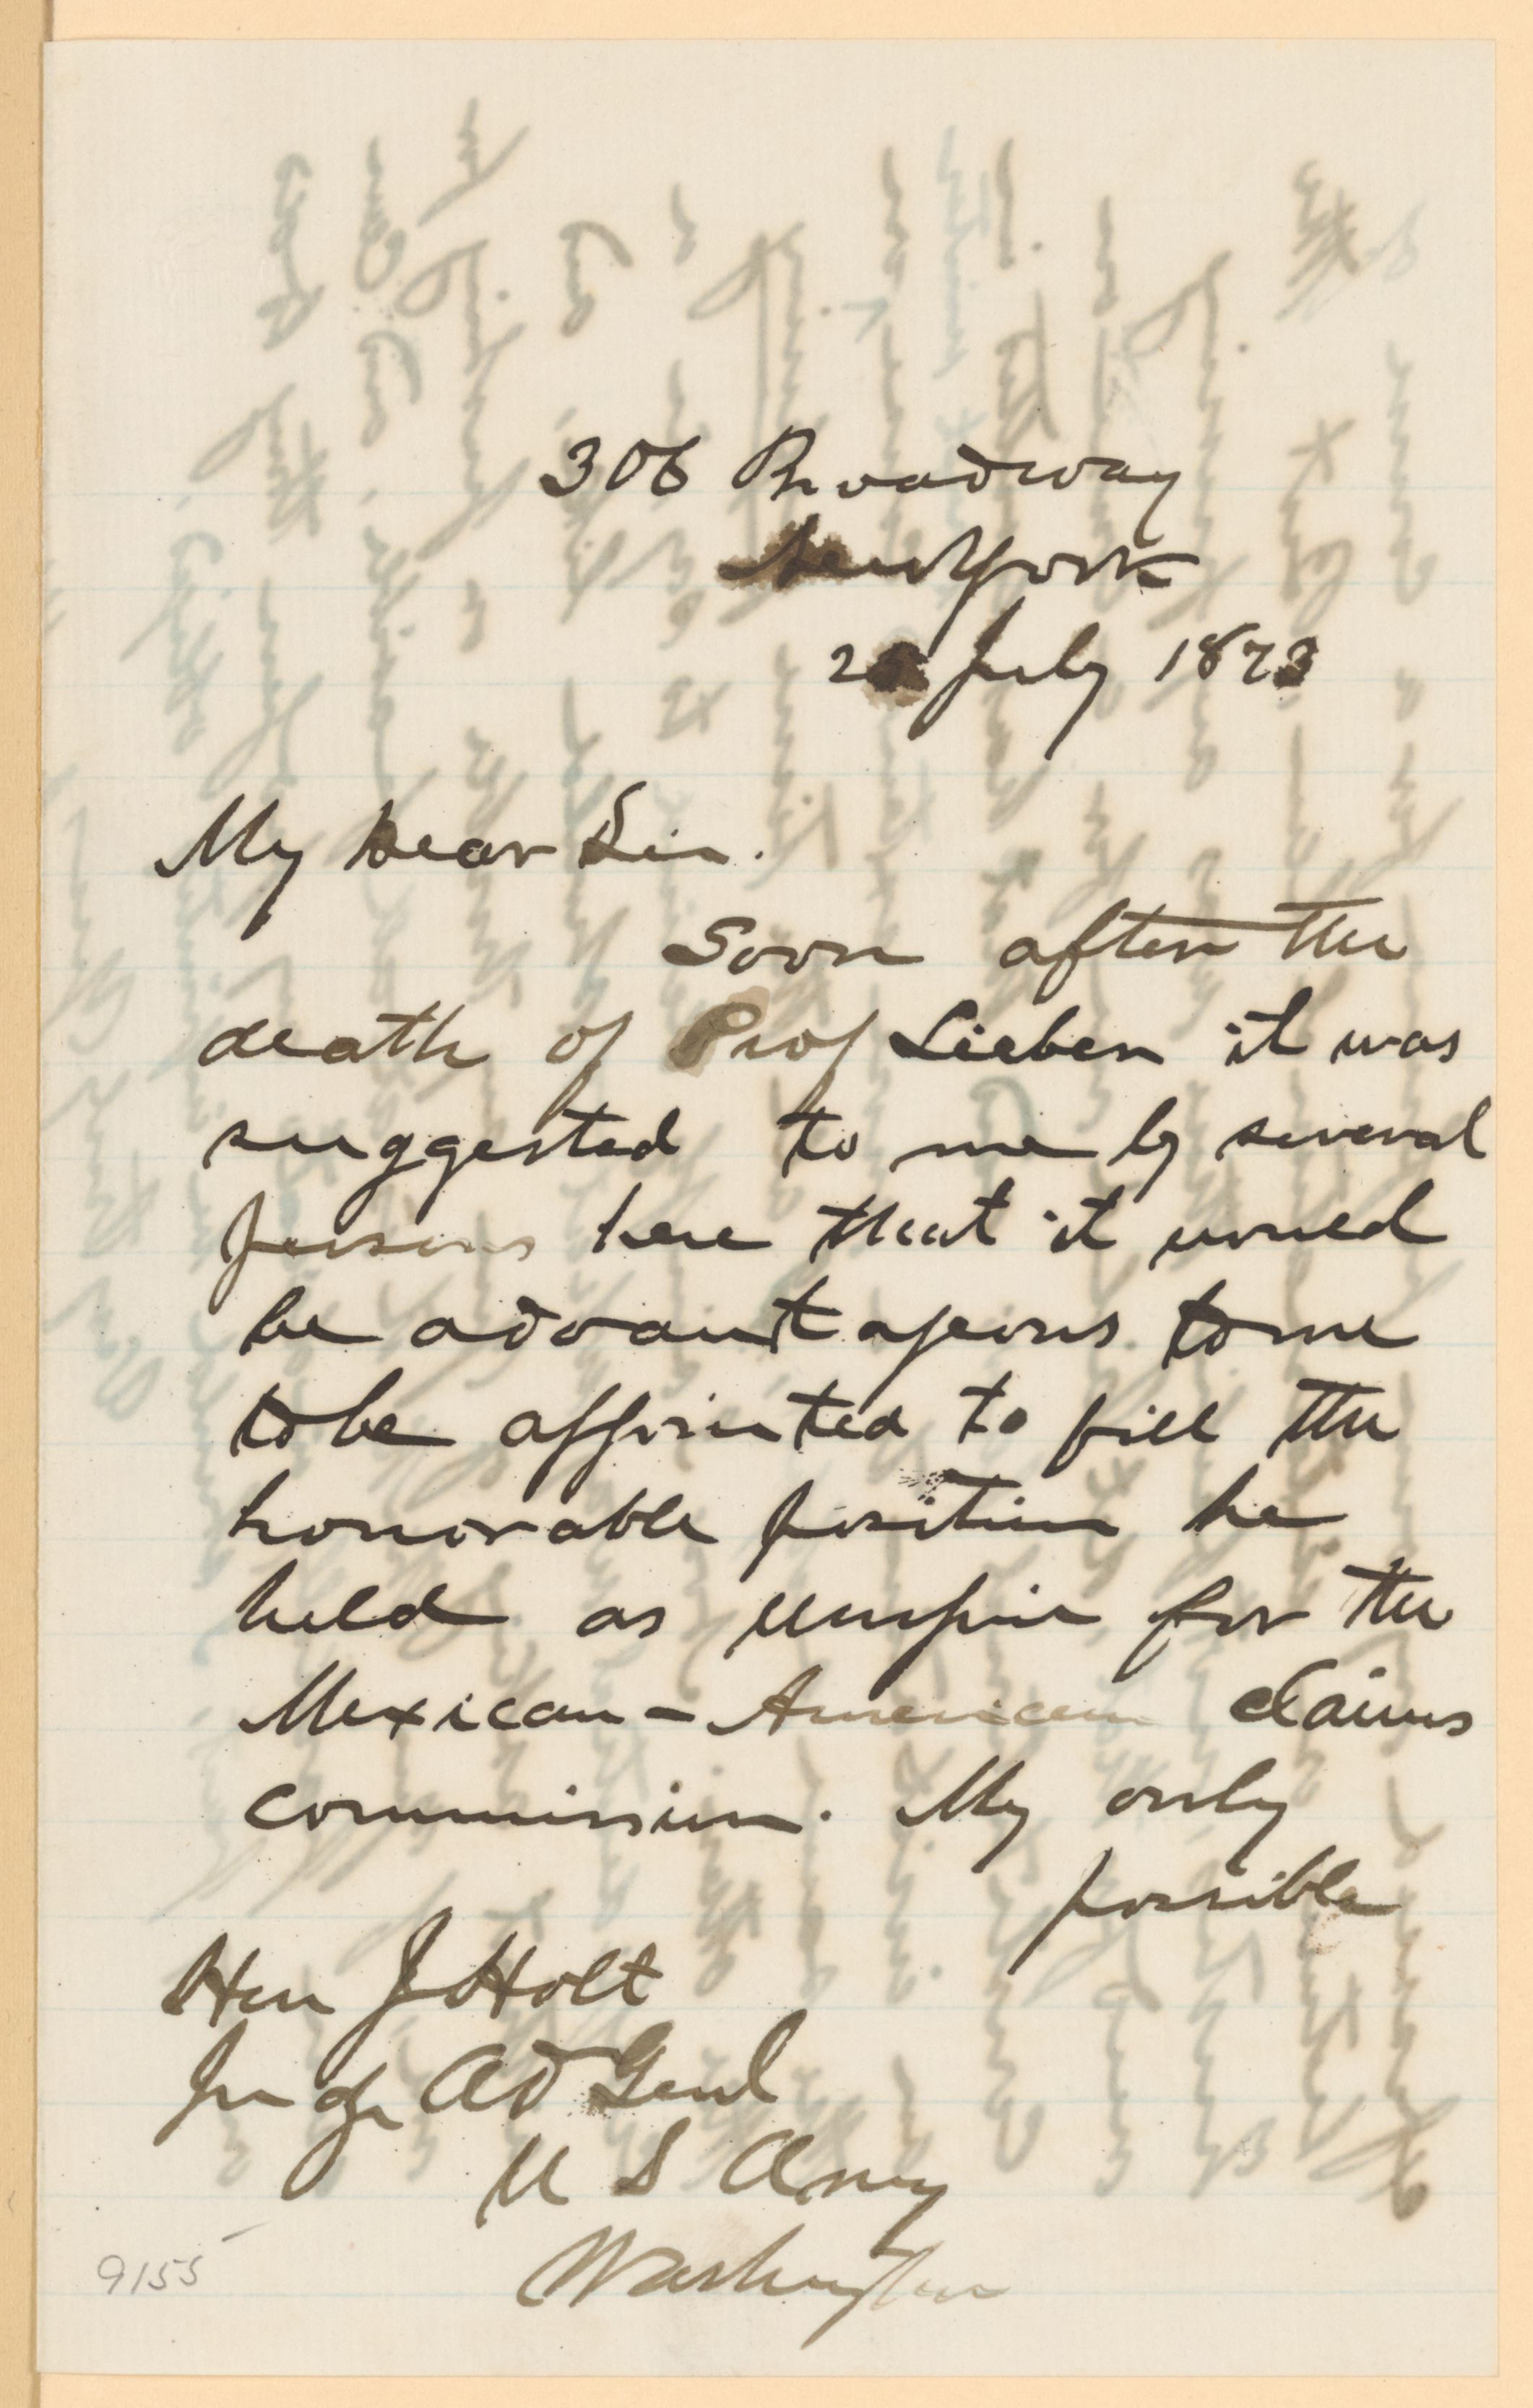 306 Broadway
New York
2 July 1873
My Dear Sir.
Soon after the
death of Prof Lieber it was
suggested to me by several
persons here that it would
be advantageous to me
to be appointed to fill the
honorable position he
held as umpire for the
Mexican - American claims
commission. My only
possible
Hon J Holt
Judge Ad Genl
U S Army
Washington
9155